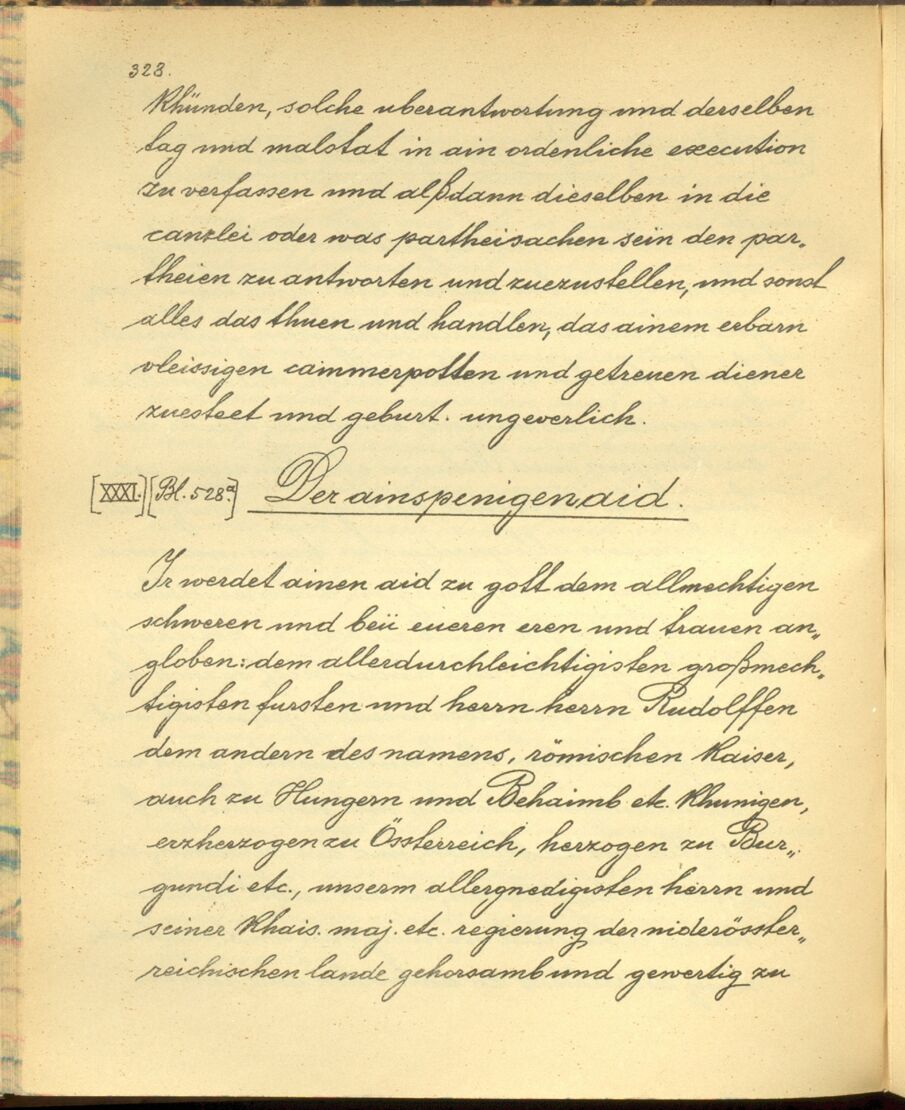 328.
khünden, solche uberantwortung und derselben
tag und malstat in ain ordenliche execution
zu verfassen und alßdann dieselben in die
canzlei oder was partheisachen sein den par„
theien zu antworten und zuezustellen, und sonst
alles das thuen und handlen, das ainem erbarn
vleissigen cammerpotten und getreuen diener
zuesteet und geburt. ungeverlich.
[XXXI.] [Bl. 528a] Der ainspenigen aid.
Ir werdet ainen aid zu gott dem allmechtigen
schweren und beü eueren eren und trauen an„
globen: dem allerdurchleichtigisten großmech„
tigisten fursten und herrn herrn Rudolffen
dem andern des namens, römischen kaiser,
auch zu Hungern und Behaimb etc. khunigen,
erzherzogen zu Össterreich, herzogen zu Bur„
gundi etc., unserm allergnedigisten herrn und
seiner khais. maj. etc. regierung der niderösster„
reichischen lande gehorsamb und gewertig zu